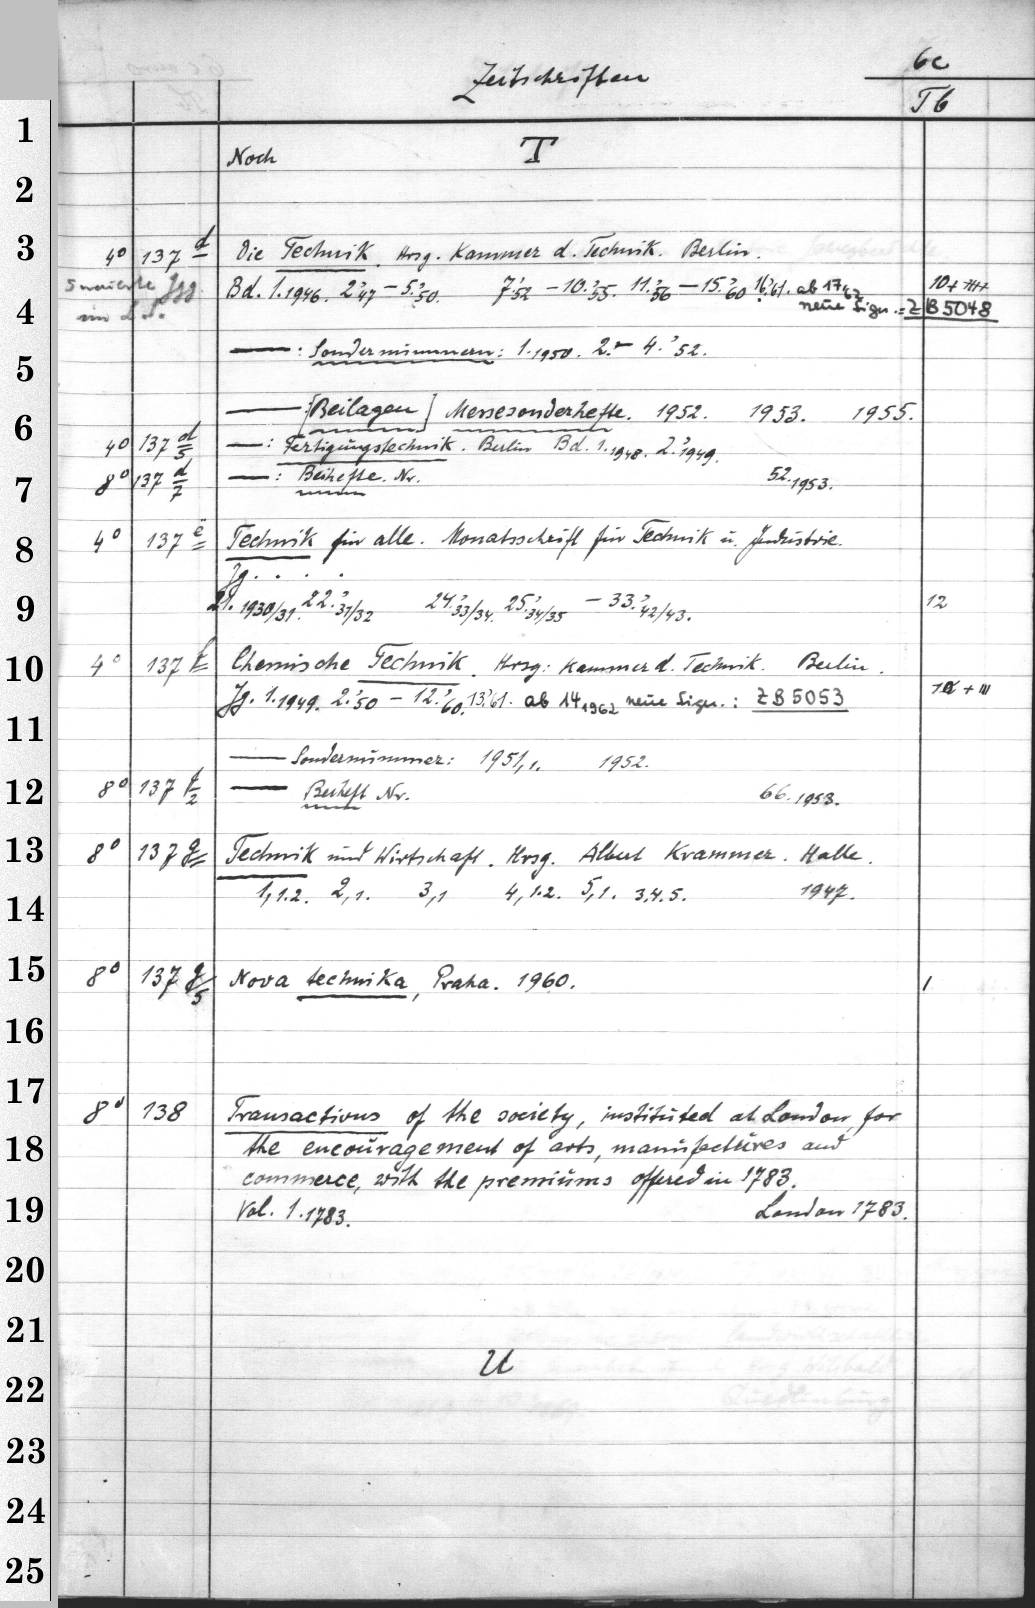 Zeitschriften
6c
Tb
1
Noch T
2
3
4° 137 d Die Technik. Hrsg. Kammer d. Technik. Berlin.
Jgg. Bd. 1.1946. 2.'47 – 5.'50. 7.'52 – 10.'55. 11.'56 – 15.'60 16.'61. ab 17.'62
im L.S. neue Sign.: ZB 5048
4
5
——: Sondernummern: 1.1950. 2. – 4.'52.
——: [Beilagen] Messesonderhefte. 1952. 1953. 1955.
6
4° 137 d/5 ——: Fertigungstechnik. Berlin Bd. 1.1948. 2.'1949.
7
8° 137 d/7 ——: Beihefte. Nr. 52.1953.
8
4° 137 e Technik für alle. Monatsschrift für Technik u. Industrie.
Jg. . . . .
9
21. 1930/31. 22.'31/32 24.'33/34. 25.'34/35 – 33.'42/43. 12
10
4° 137 f Chemische Technik. Hrsg: Kammer d. Technik. Berlin.
Jg. 1.1949. 2.'50 – 12.'60. 13.'61. ab 14 1962 neue Sign.: ZB 5053
11
—— Sondernummer: 1951,1. 1952.
12
8° 137 f/2 —— Beiheft Nr. 66.1953.
13
8° 137 g Technik und Wirtschaft. Hrsg. Albert Krammer. Halle.
1,1.2. 2,1. 3,1 4,1.2. 5,1. 3.4.5. 1947.
14
15
8° 137 g/5 Nova technika, Praha. 1960. 1
16
17
8° 138 Transactions of the society, instituted at London, for
18
the encouragement of arts, manufactures and
commerce, with the premiums offered in 1783.
19
Vol. 1.1783. London 1783.
20
21
U
22
23
24
25